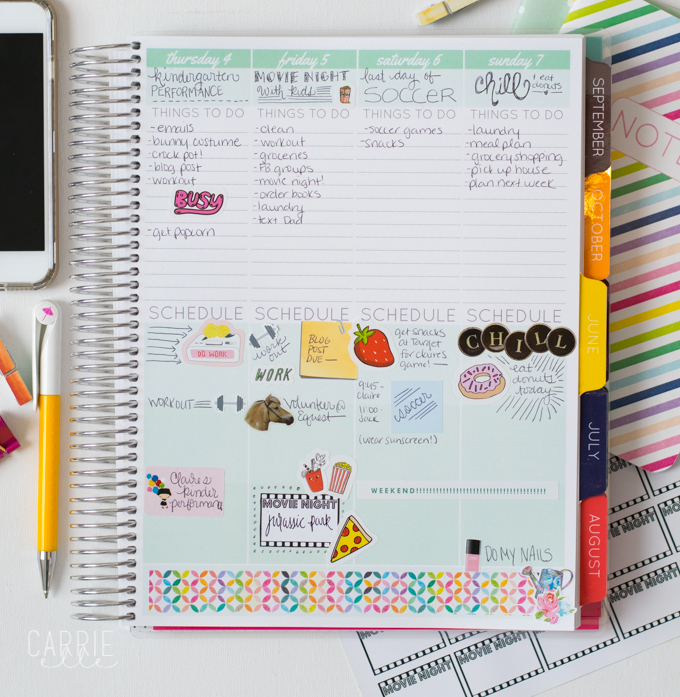 thursday 4
friday 5
saturday 6
sunday 7
kindergarten
PERFORMANCE
MOVIE NIGHT
with kids
last day of
SOCCER
Chill
! eat
donuts
THINGS TO DO
THINGS TO DO
THINGS TO DO
THINGS TO DO
-emails
-bunny costume
-crock pot!
-blog post
-workout
BUSY
-get popcorn
-clean
-workout
-groceries
-PB groups
-movie night!
-order books
-laundry
-text Dad
-soccer games
-snacks
-laundry
-meal plan
-grocery shopping
-pick up house
-plan next week
SCHEDULE
SCHEDULE
SCHEDULE
SCHEDULE
DO WORK
WORKOUT
Claire's
kinder
performan
work
out
WORK
BLOG
POST
DUE
Volunteer @
Equest
MOVIE NIGHT
jurassic park
get snacks
at Target
for claire's
game!
9:45-
Claire
11:00-
Jack
soccer
(wear sunscreen!)
WEEKEND!!!!!!!!!!!!!!!!!!!!!!!!!!!!!!!!!!!!!!!
CHILL
eat
donuts
today
DO MY NAILS
SEPTEMBER
OCTOBER
JUNE
JULY
AUGUST
NOTE
MOVIE NIGHT
MOVIE NIGHT
MOVIE NIGHT
MOVIE NIGHT
CARRIE
elle